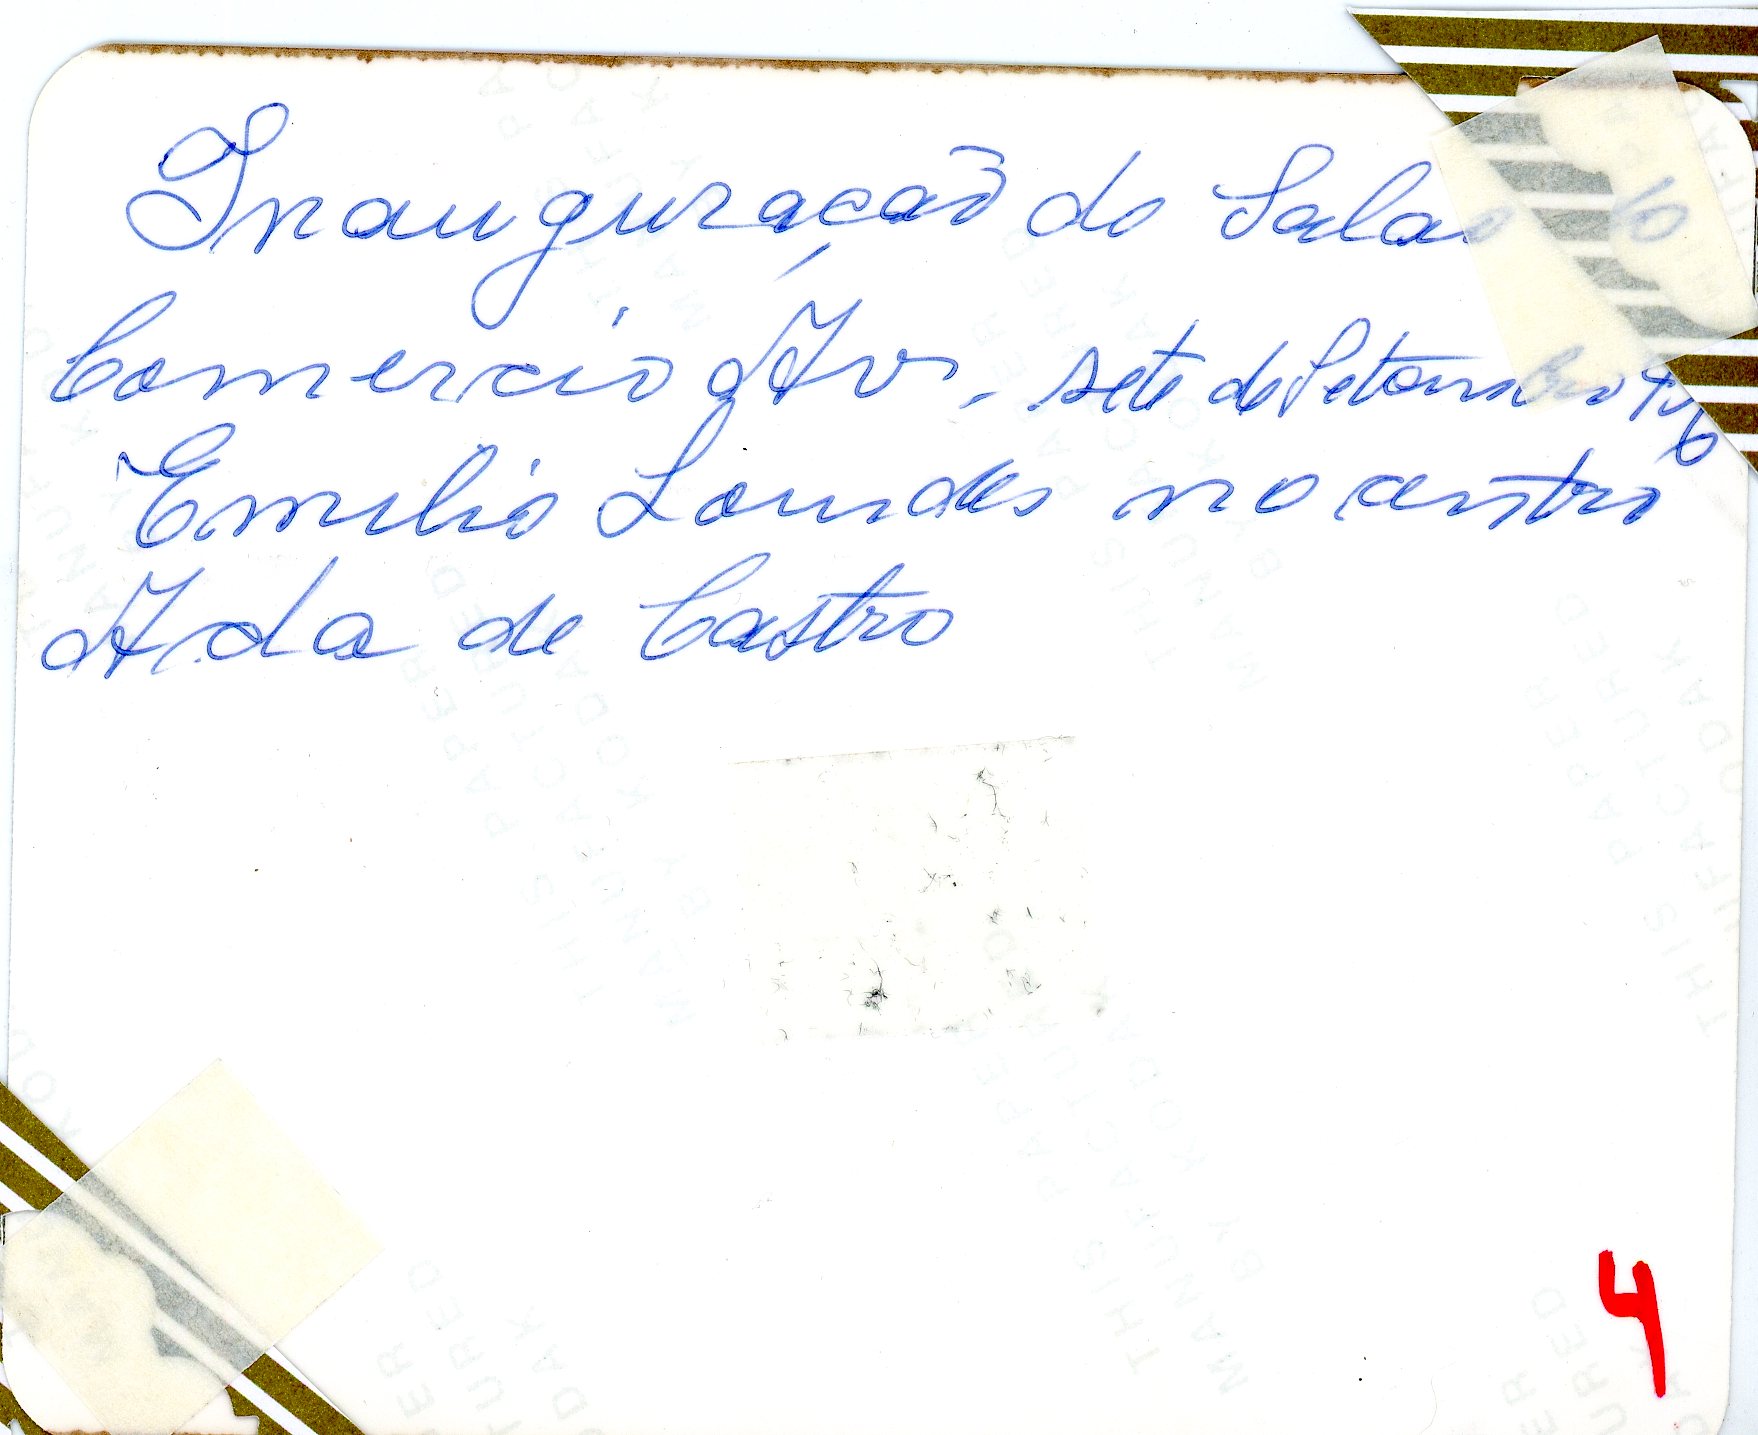 Inauguração do Salao do
Comercio Av. sete de Setembro
Emilio Lourdes no centro
Ada de Castro
THIS PAPER
MANUFACTURED
BY KODAK
4